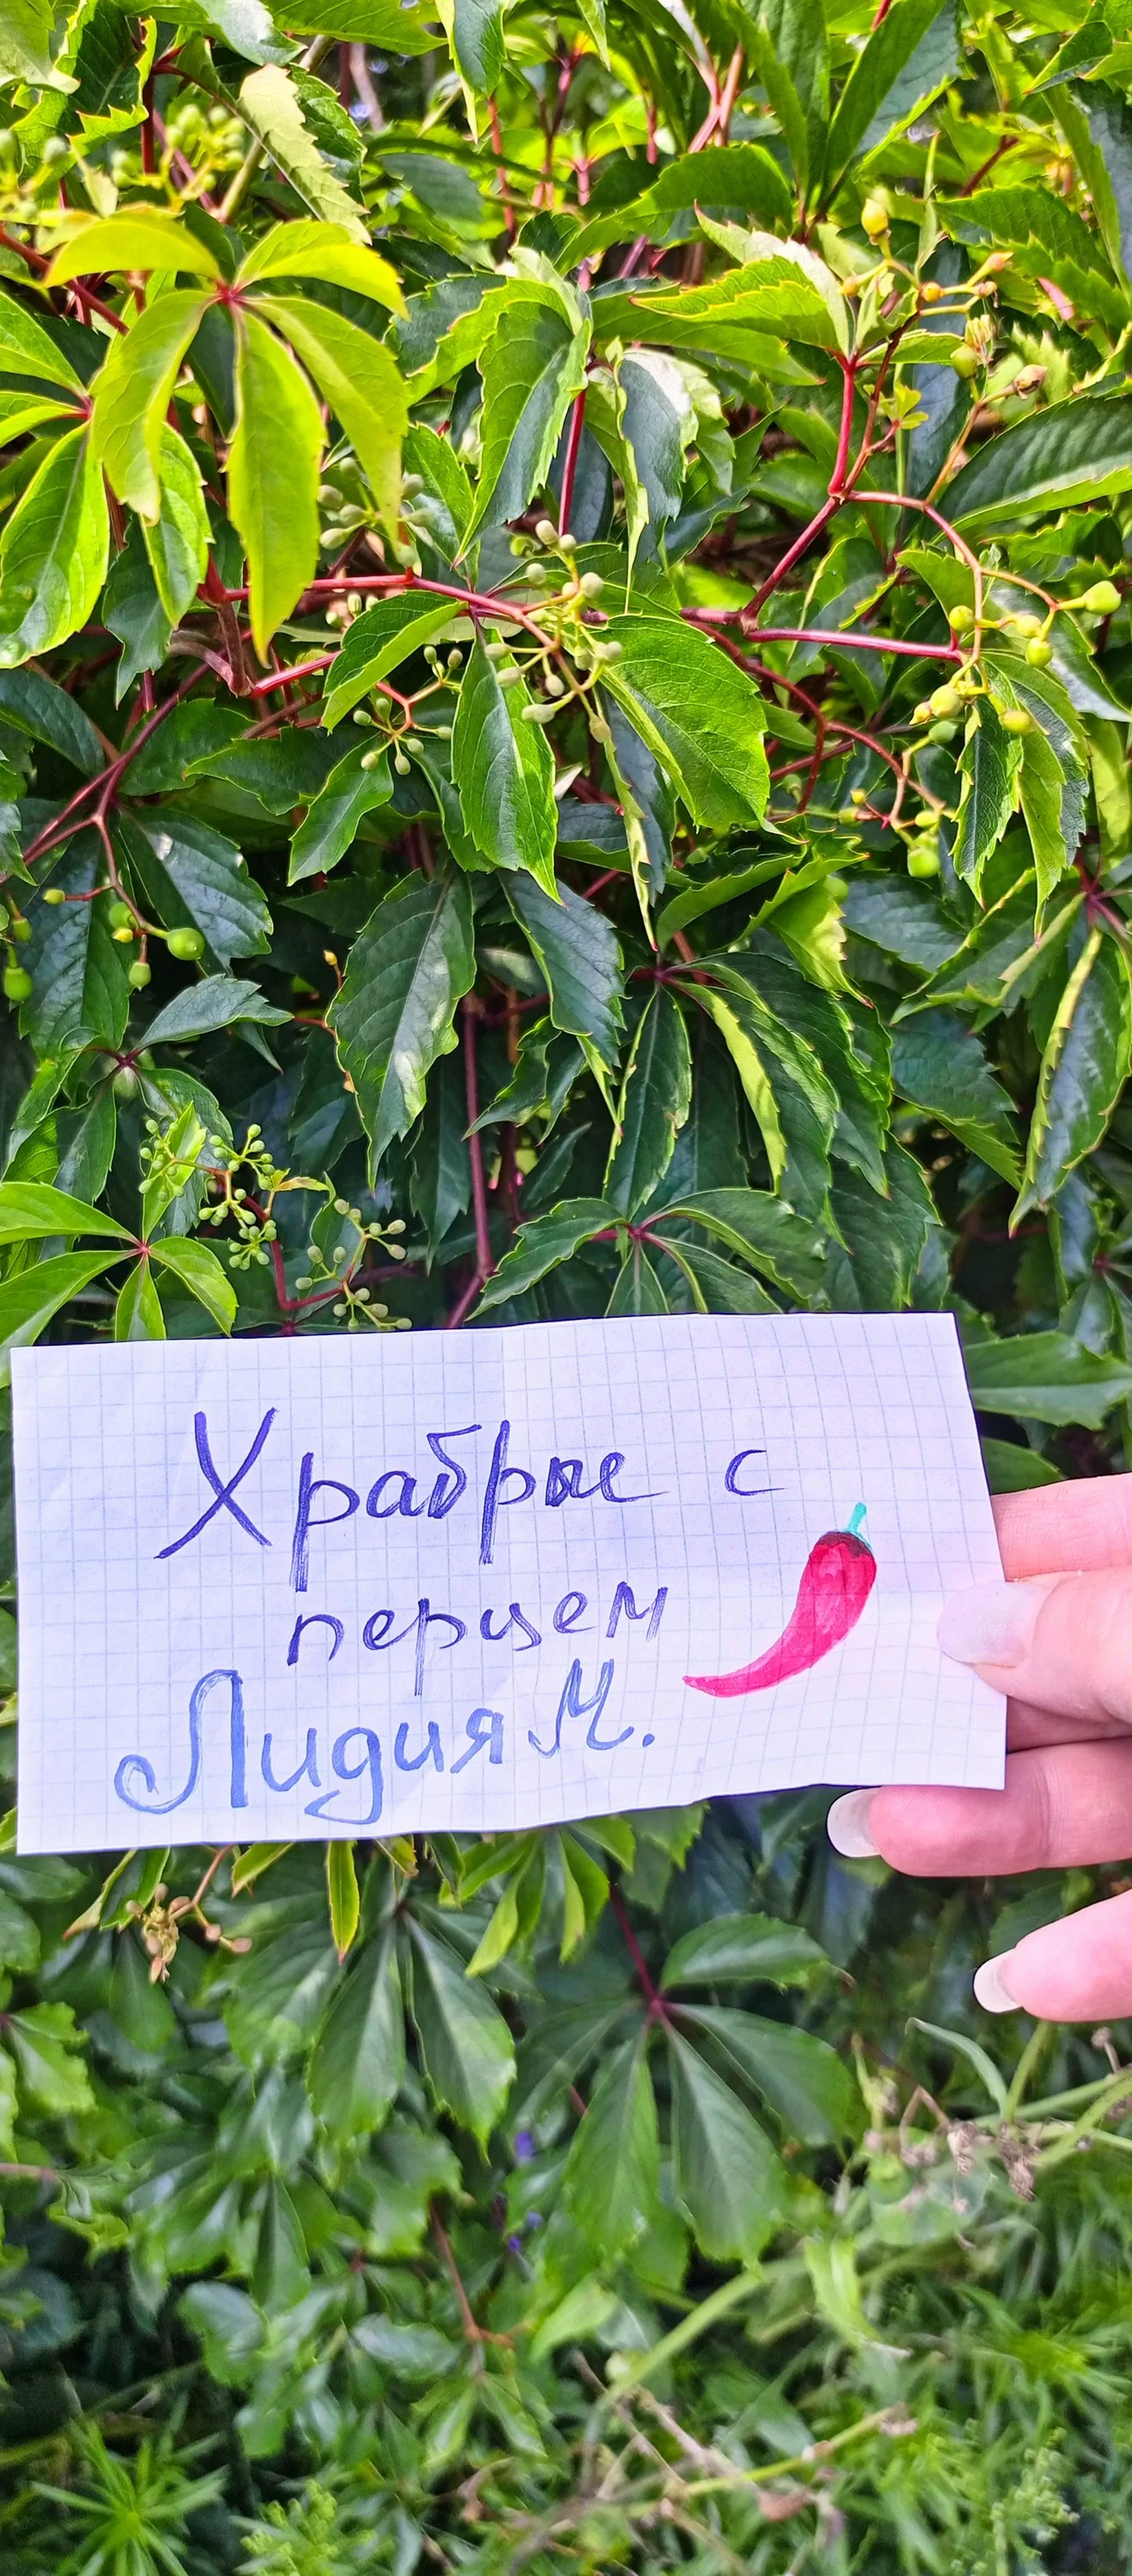 Храбрые с
перцем
Лидия М.